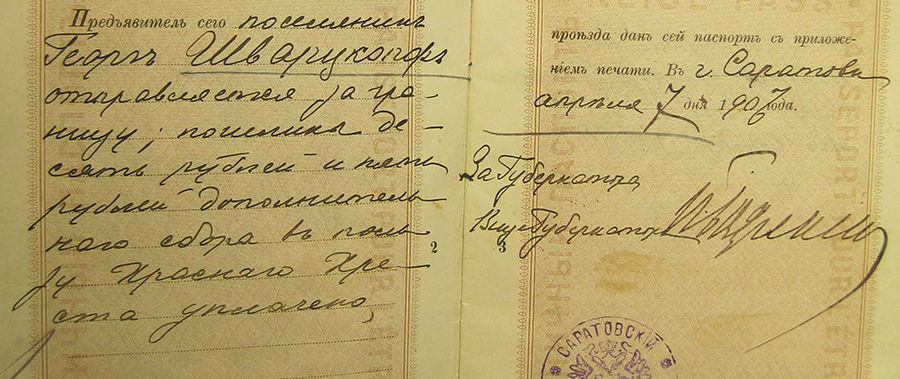 Предъявитель сего поселянинъ
Георгъ Шварцкопфъ
отправляется за гра-
ницу; пошлины де-
сять рублей и пять
рублей дополнитель
наго сбора въ поль
зу Краснаго Кре-
ста уплачено,
2
проѣзда данъ сей паспортъ съ приложе-
ніемъ печати. Въ г. Саратовѣ,
апрѣля 7 дня 1907 года.
За Губернатора
Вице-Губернаторъ
3
САРАТОВСКІЙ